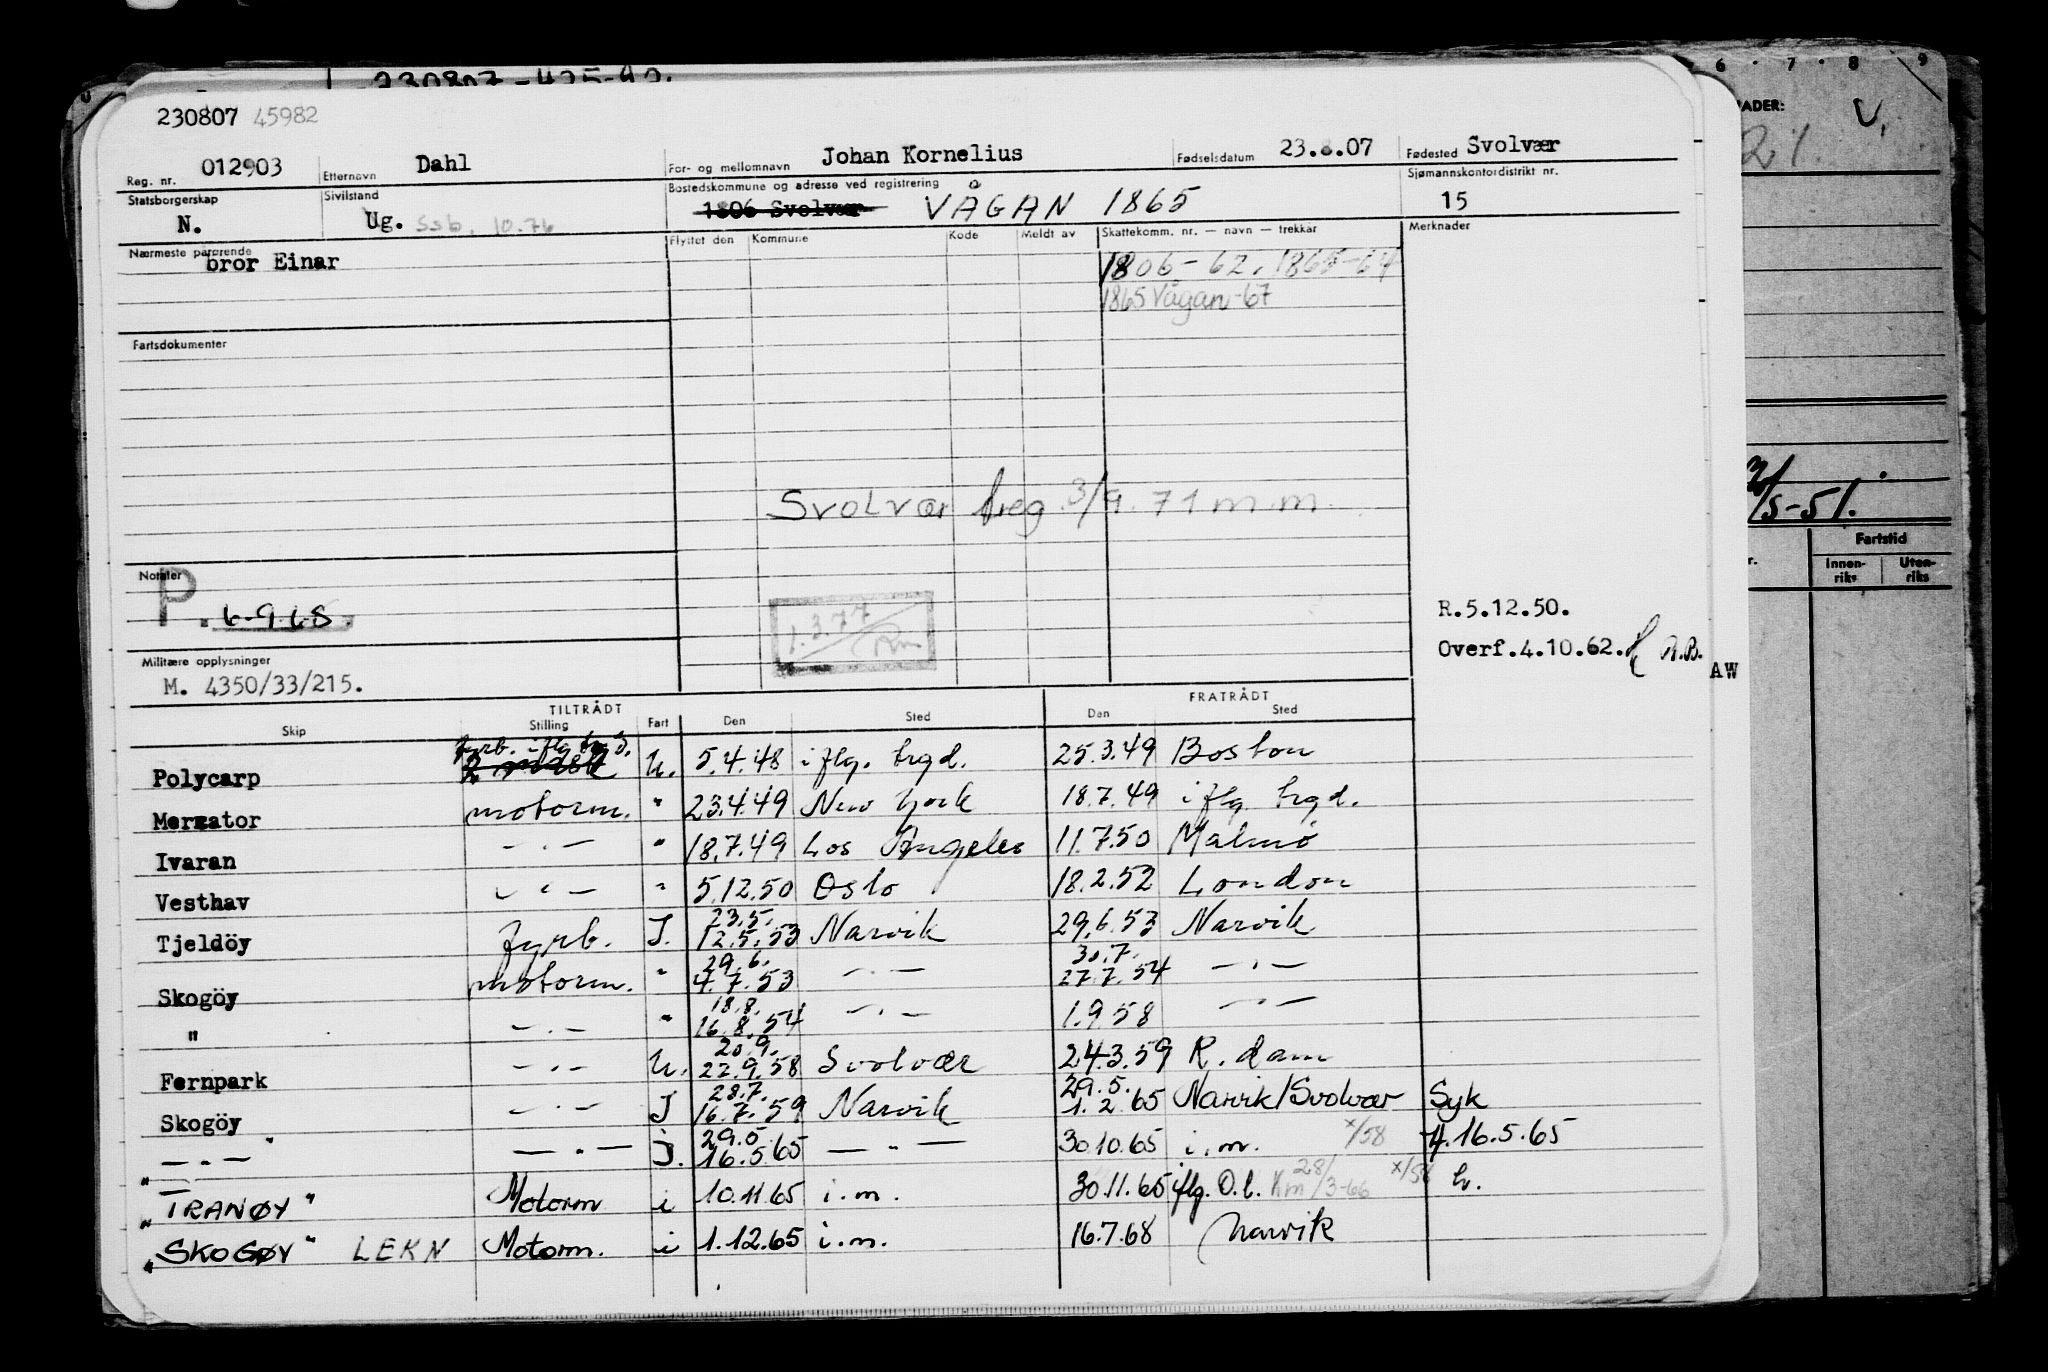 230807-425-42.
6 . 7 . 8 9
230807 45982
NADER: V.
21.
Reg. nr. 012903 Etternavn Dahl For- og mellomnavn Johan Kornelius Fødselsdatum 23.8.07 Fødested Svolvær
Statsborgerskap N. Sivilstand Ug. Ssb. 10.76 Bostedskommune og adresse ved registrering 1806 Svolvær VÅGAN 1865 Sjømannskontordistrikt nr. 15
Nærmeste pårørende bror Einar Flyttet den Kommune Kode Meldt av Skattekomm. nr. — navn — trekkår Merknader
1806-62, 1865-64
1865 Vågan-67
Fartsdokumenter
Svolvær breg 3/9.71 m.m
/5-51.
Fartstid
r. Innen-riks Uten-riks
Notater
P. 6-9 68.
1.3.77
R.5.12.50.
Overf.4.10.62. A.B. AW
Militære opplysninger
M. 4350/33/215.
TILTRÅDT FRATRÅDT
Skip Stilling Fart Den Sted Den Sted
Polycarp fyrb. iflg. trgd. U. 5.4.48 iflg. trgd. 25.3.49 Boston
Mercator motorm. " 23.4.49 New York 18.7.49 iflg. trgd.
Ivaran - . - " 18.7.49 Los Angeles 11.7.50 Malmö
Vesthav - " - " 5.12.50 Oslo 18.2.52 London
Tjeldöy fyrb. I. 23.5. 12.5.53 Narvik 29.6.53 Narvik
Skogöy motorm. " 29.6. 4.7.53 - . - 30.7. 27.7.54 - . -
" - . - " 18.8. 16.8.54 - . - 1.9 58 - . -
Fernpark - . - U. 20.9. 22.9.58 Svolvær 24.3.59 R. dam
Skogöy - . - I 28.7. 16.7.59 Narvik 29.5. 1.2.65 Narvik/Svolvær Syk
- . - " - . - I. 29.5 16.5.65 - " - 30.10.65 i.m. x/58 4.16.5.65
"TRANØY" Motorm i 10.11.65 i.m. 30.11.65 iflg. O.l. Km 28/3-66 x/58
"SKOGØY" LEKN Motorm. i 1.12.65 i.m. 16.7.68 Narvik